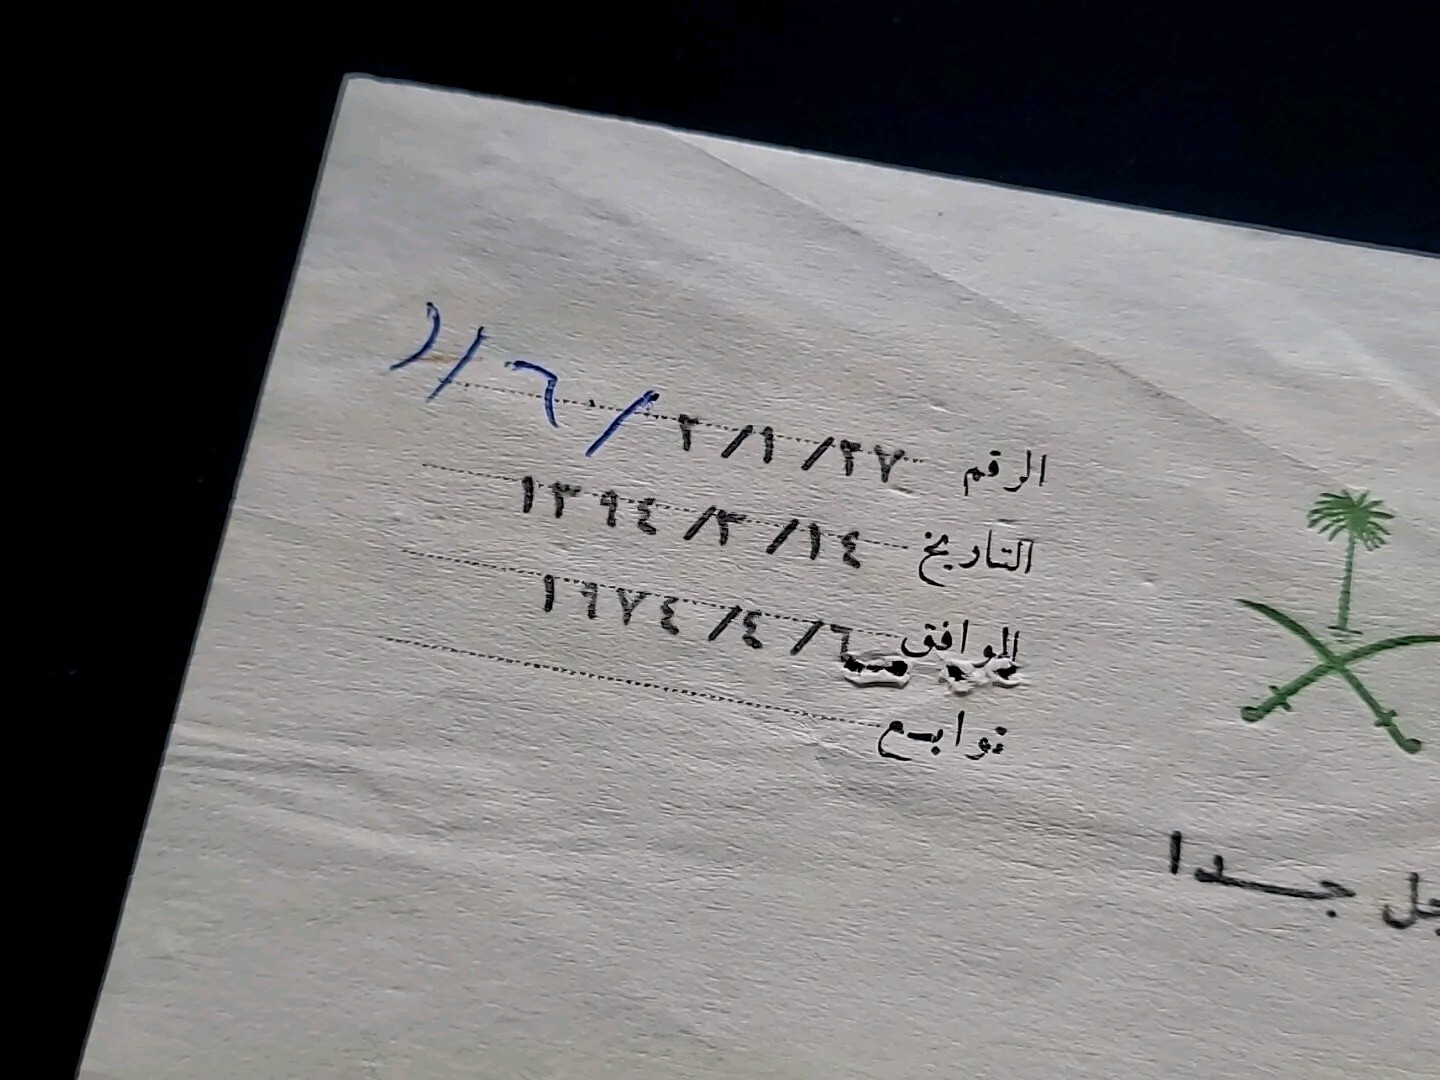 الرقم ٢٧/١/٢
التاريخ ١٤/٣/١٣٩٤
الموافق ٦/٤/١٩٧٤
توابع
جدا